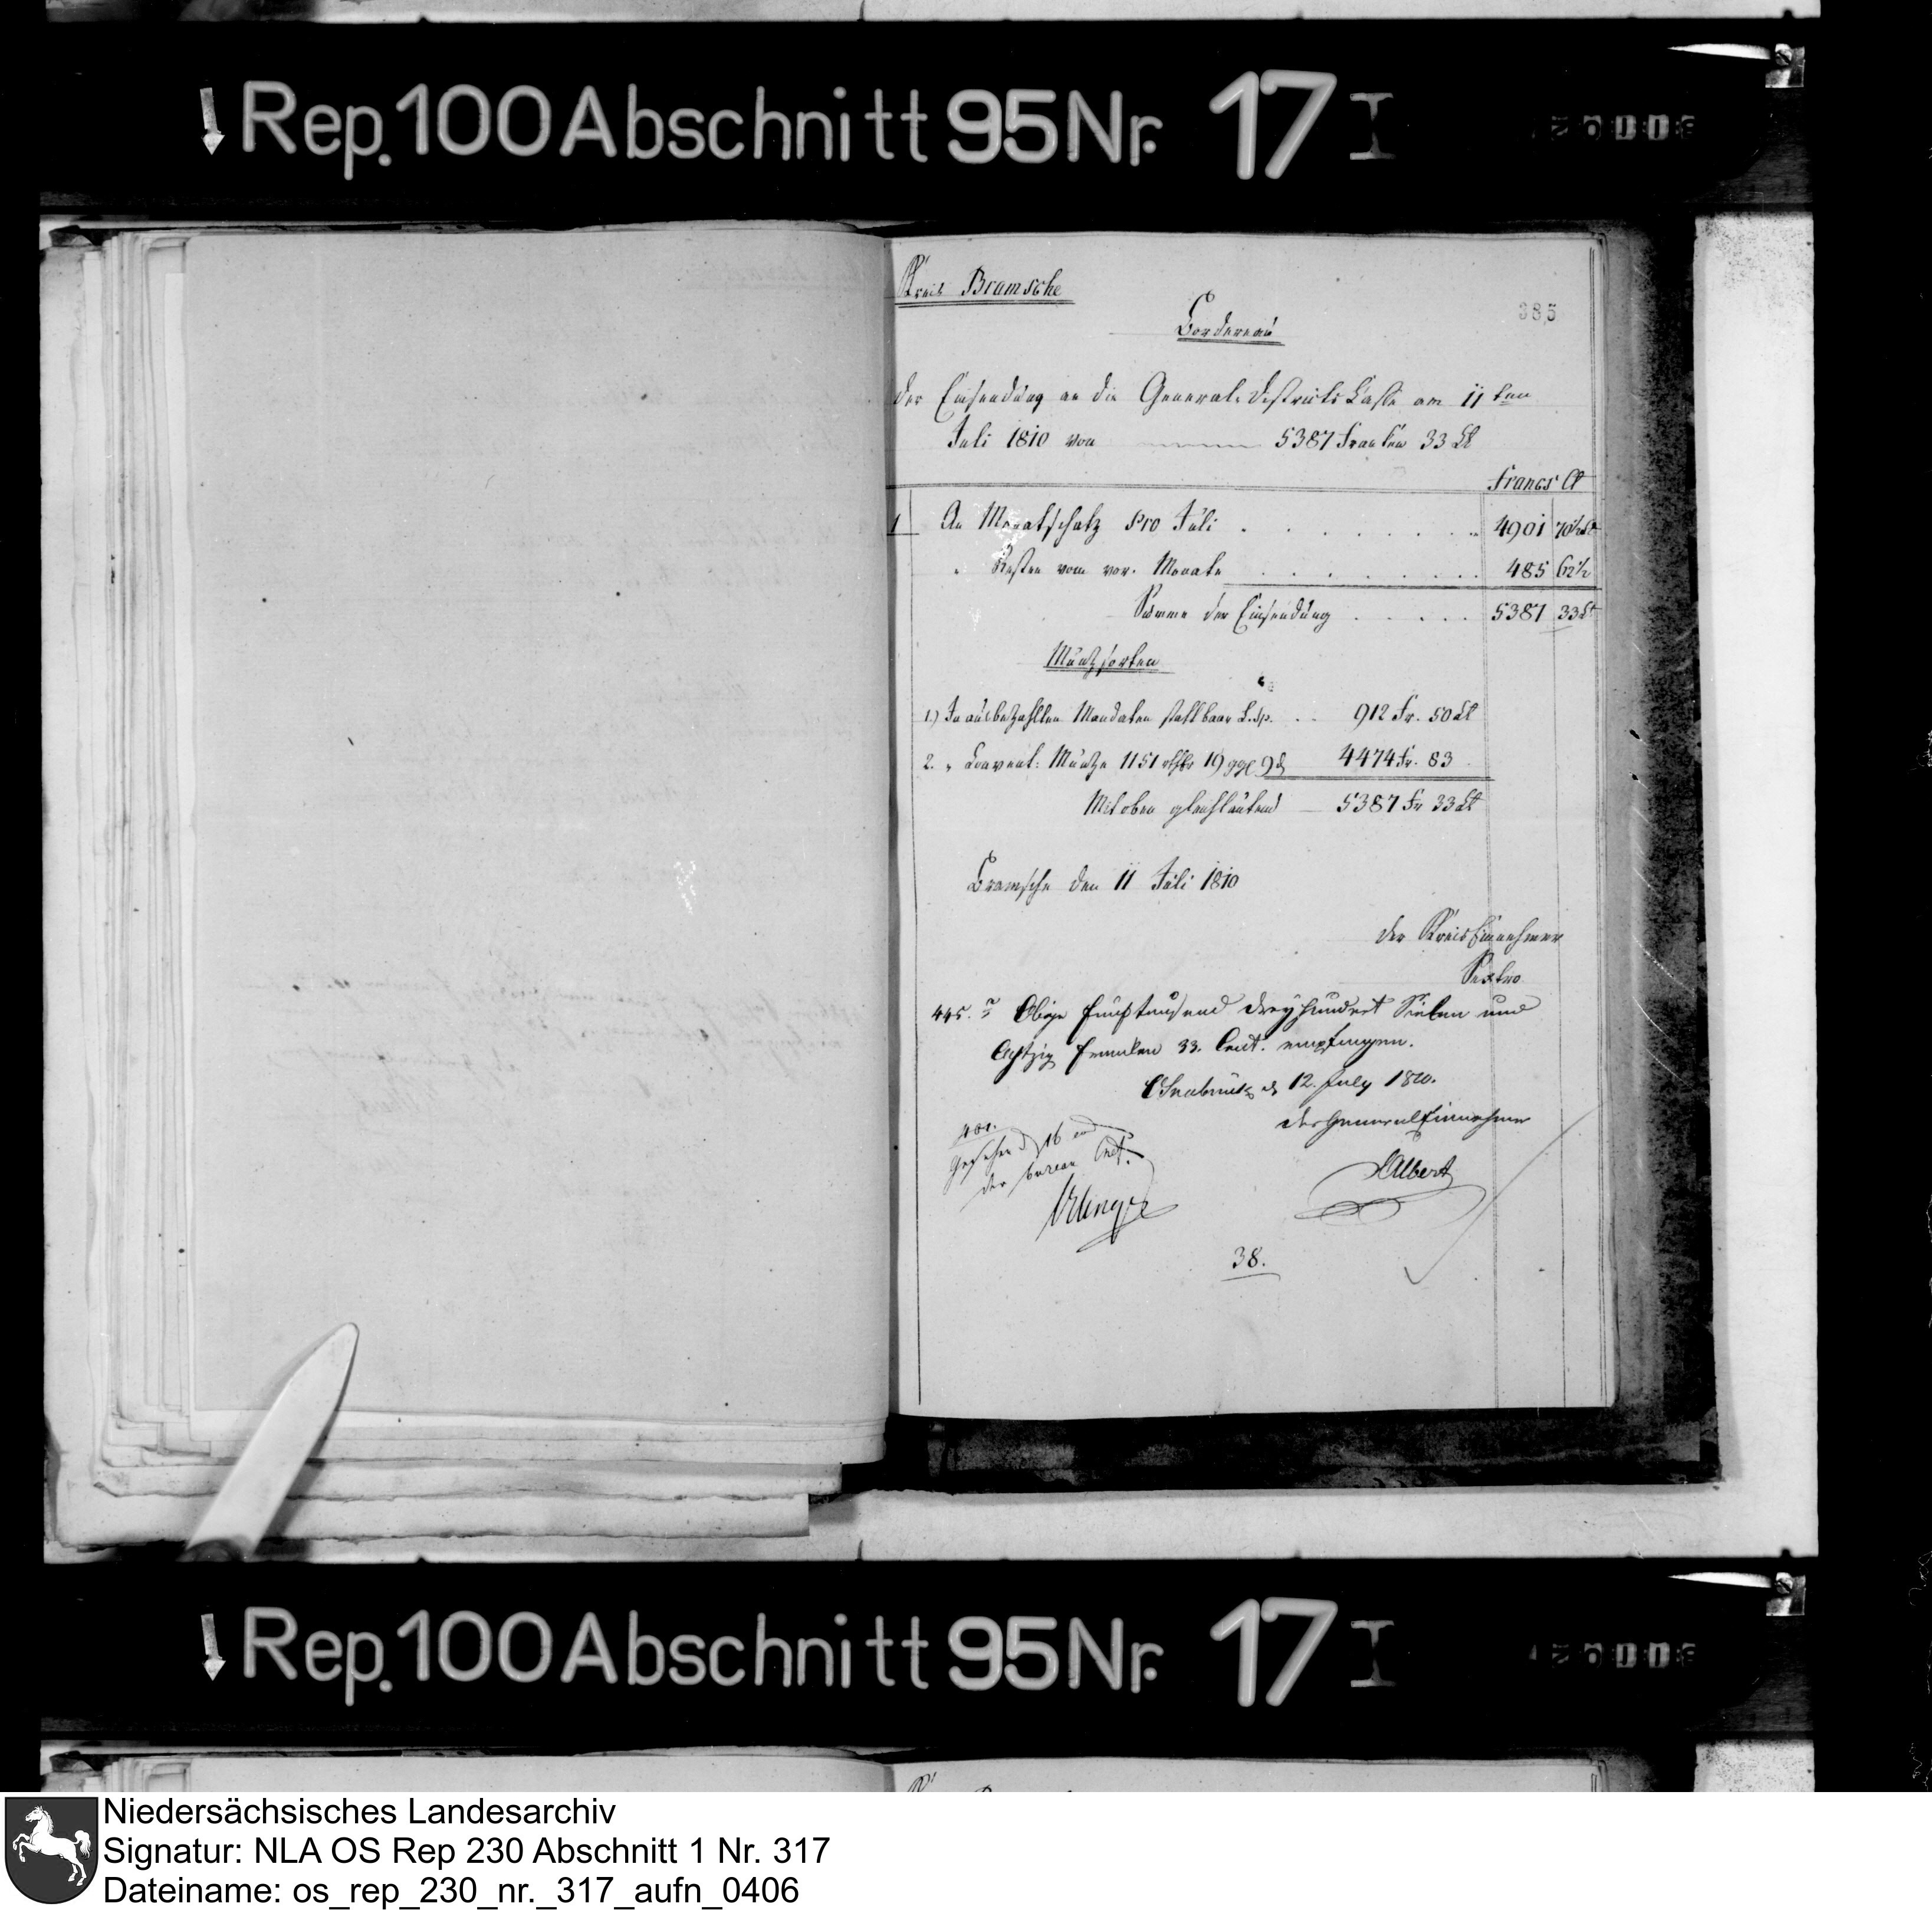 Rep. 100 Abschnitt 95 Nr. 17 I
Kreis Bramsche
385
Bordereau
der Einsendung an die General-Districts Casse am 11ten
Juli 1810 von 5387 Franken 33 Ct
Francs Ct
1 An Monatschatz pro Juli . . . . . . . . 4901 70½ Ct
" Resten vom vor. Monate . . . . . . . 485 62½
Summe der Einsendung . . . . . 5387 33 Ct
Müntzsorten
1.) In ausbezahlten Mandaten . . 912 Fr. 50 Ct
2. " Convent: Müntze 1151 rthlr 19 ggl 9 d 4474 Fr. 83
Mit oben gleichlautend 5387 Fr 33 Ct
Bramsche den 11 Juli 1810
der Kreis Einnehmer
Sextro
445. Obige fünftausend dreyhundert Sieben und
Achtzig Franken 33. Cent. empfangen.
Osnabrück d 12. July 1810.
der General Einnehmer
Albert
Gesehen d 16
der bureau Chef.
38.
Rep. 100 Abschnitt 95 Nr. 17 I
Niedersächsisches Landesarchiv
Signatur: NLA OS Rep 230 Abschnitt 1 Nr. 317
Dateiname: os_rep_230_nr._317_aufn_0406